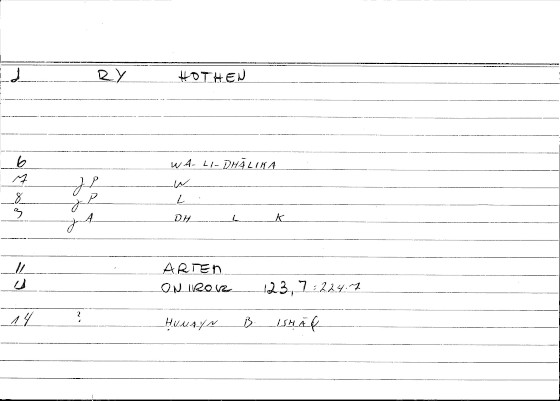 1 RY HOTHEN
6 WA-LI-DHĀLIKA
7 gP W
8 gP L
9 gA DH L K
11 ARTEM
12 ONIROCR 123,7:224.7
14 ? ḤUNAYN B ISḤĀQ